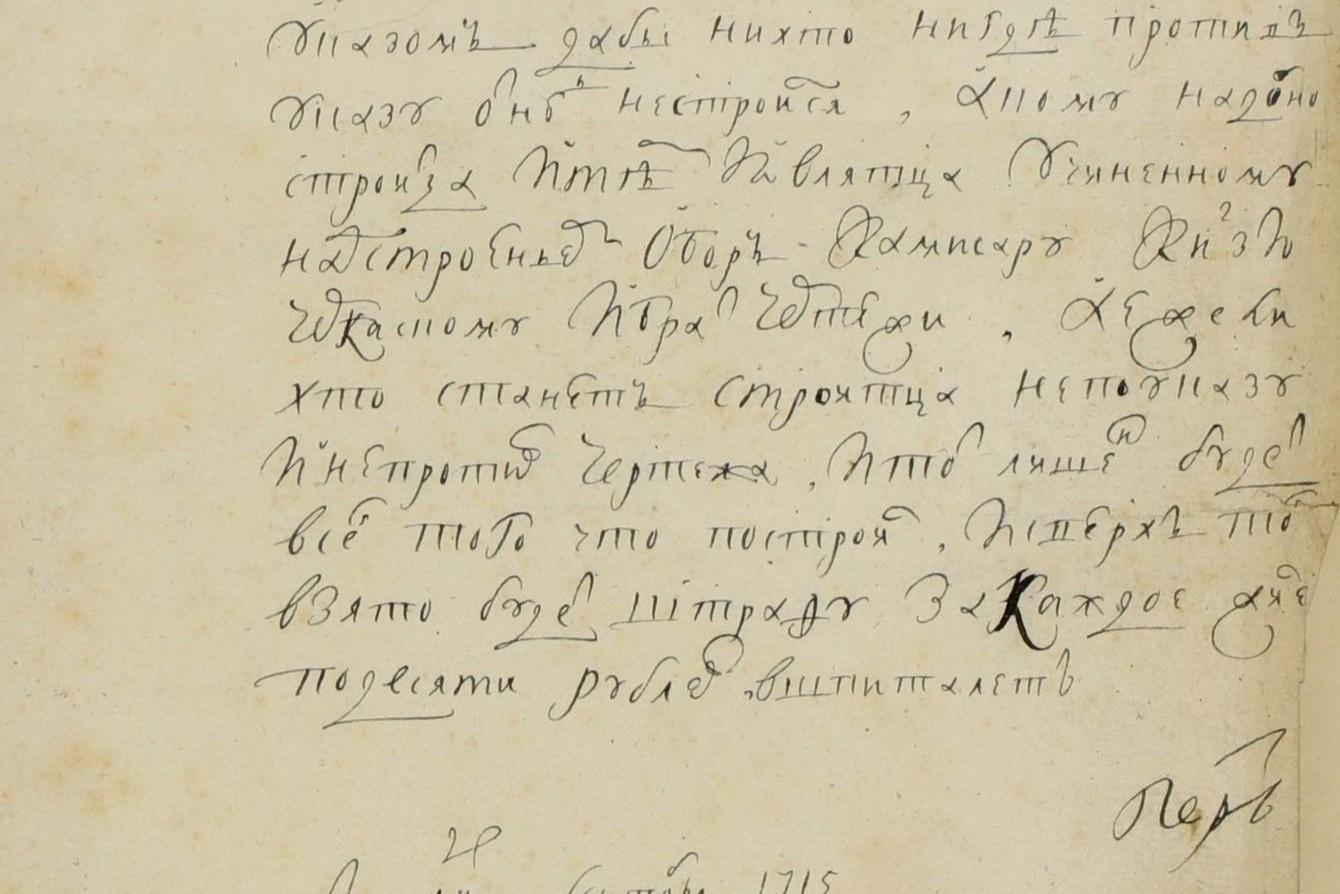 указомъ дабы нихто нигдѣ противъ
указу онъ нестроился, Акому надобно
строитца Итѣ Являтца Учиненному
надстроениемъ Оберъ-Камисару Кнзю
Черкаскому Ибрать Чертежи, Аежели
хто станетъ строитца непоуказу
Инепротивъ Чертежа, Ито лишенъ будетъ
всего того что построятъ, Исверхъ того
взято будетъ штрафу За Каждое
подесяти рублевъ, вшпиталетъ
Петръ
1715